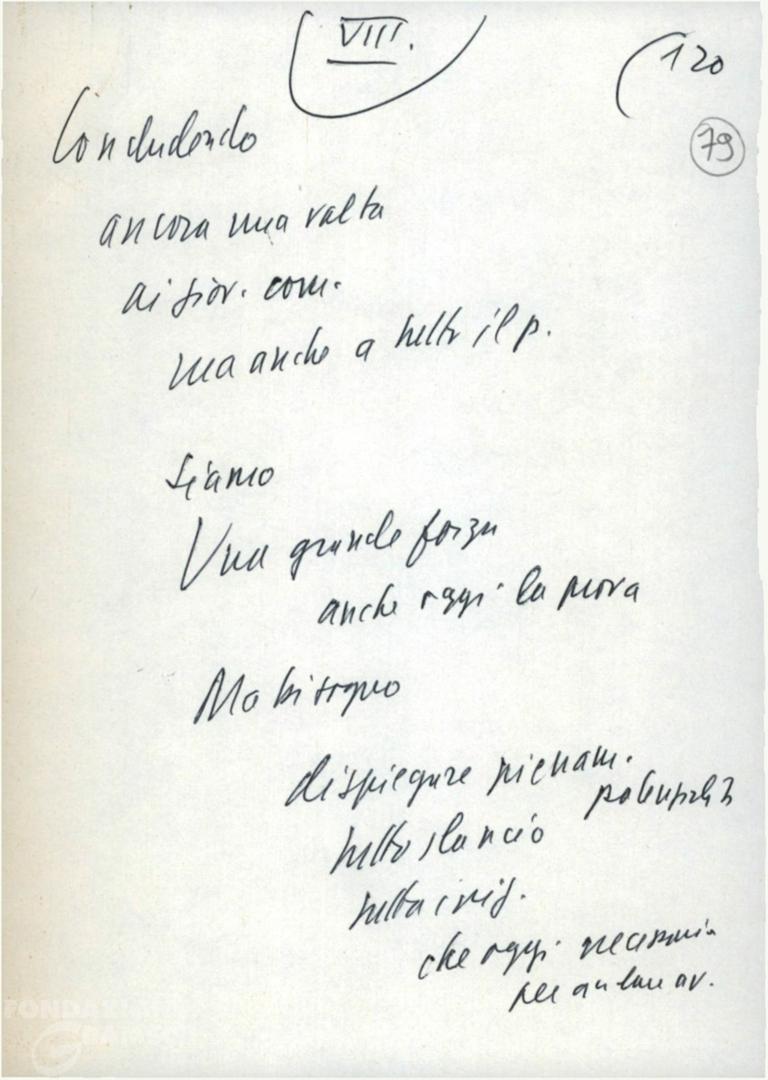 VIII.
120
79
Concludendo
ancora una volta
ai giov. com.
ma anche a tutto il p.
Siamo
Una grande forza
anche oggi la prova
Ma bisogno
dispiegare pienam.
potenzialità
tutto slancio
tutta
che oggi necessaria
per andare av.
FONDAZIONE
GRAMSCI